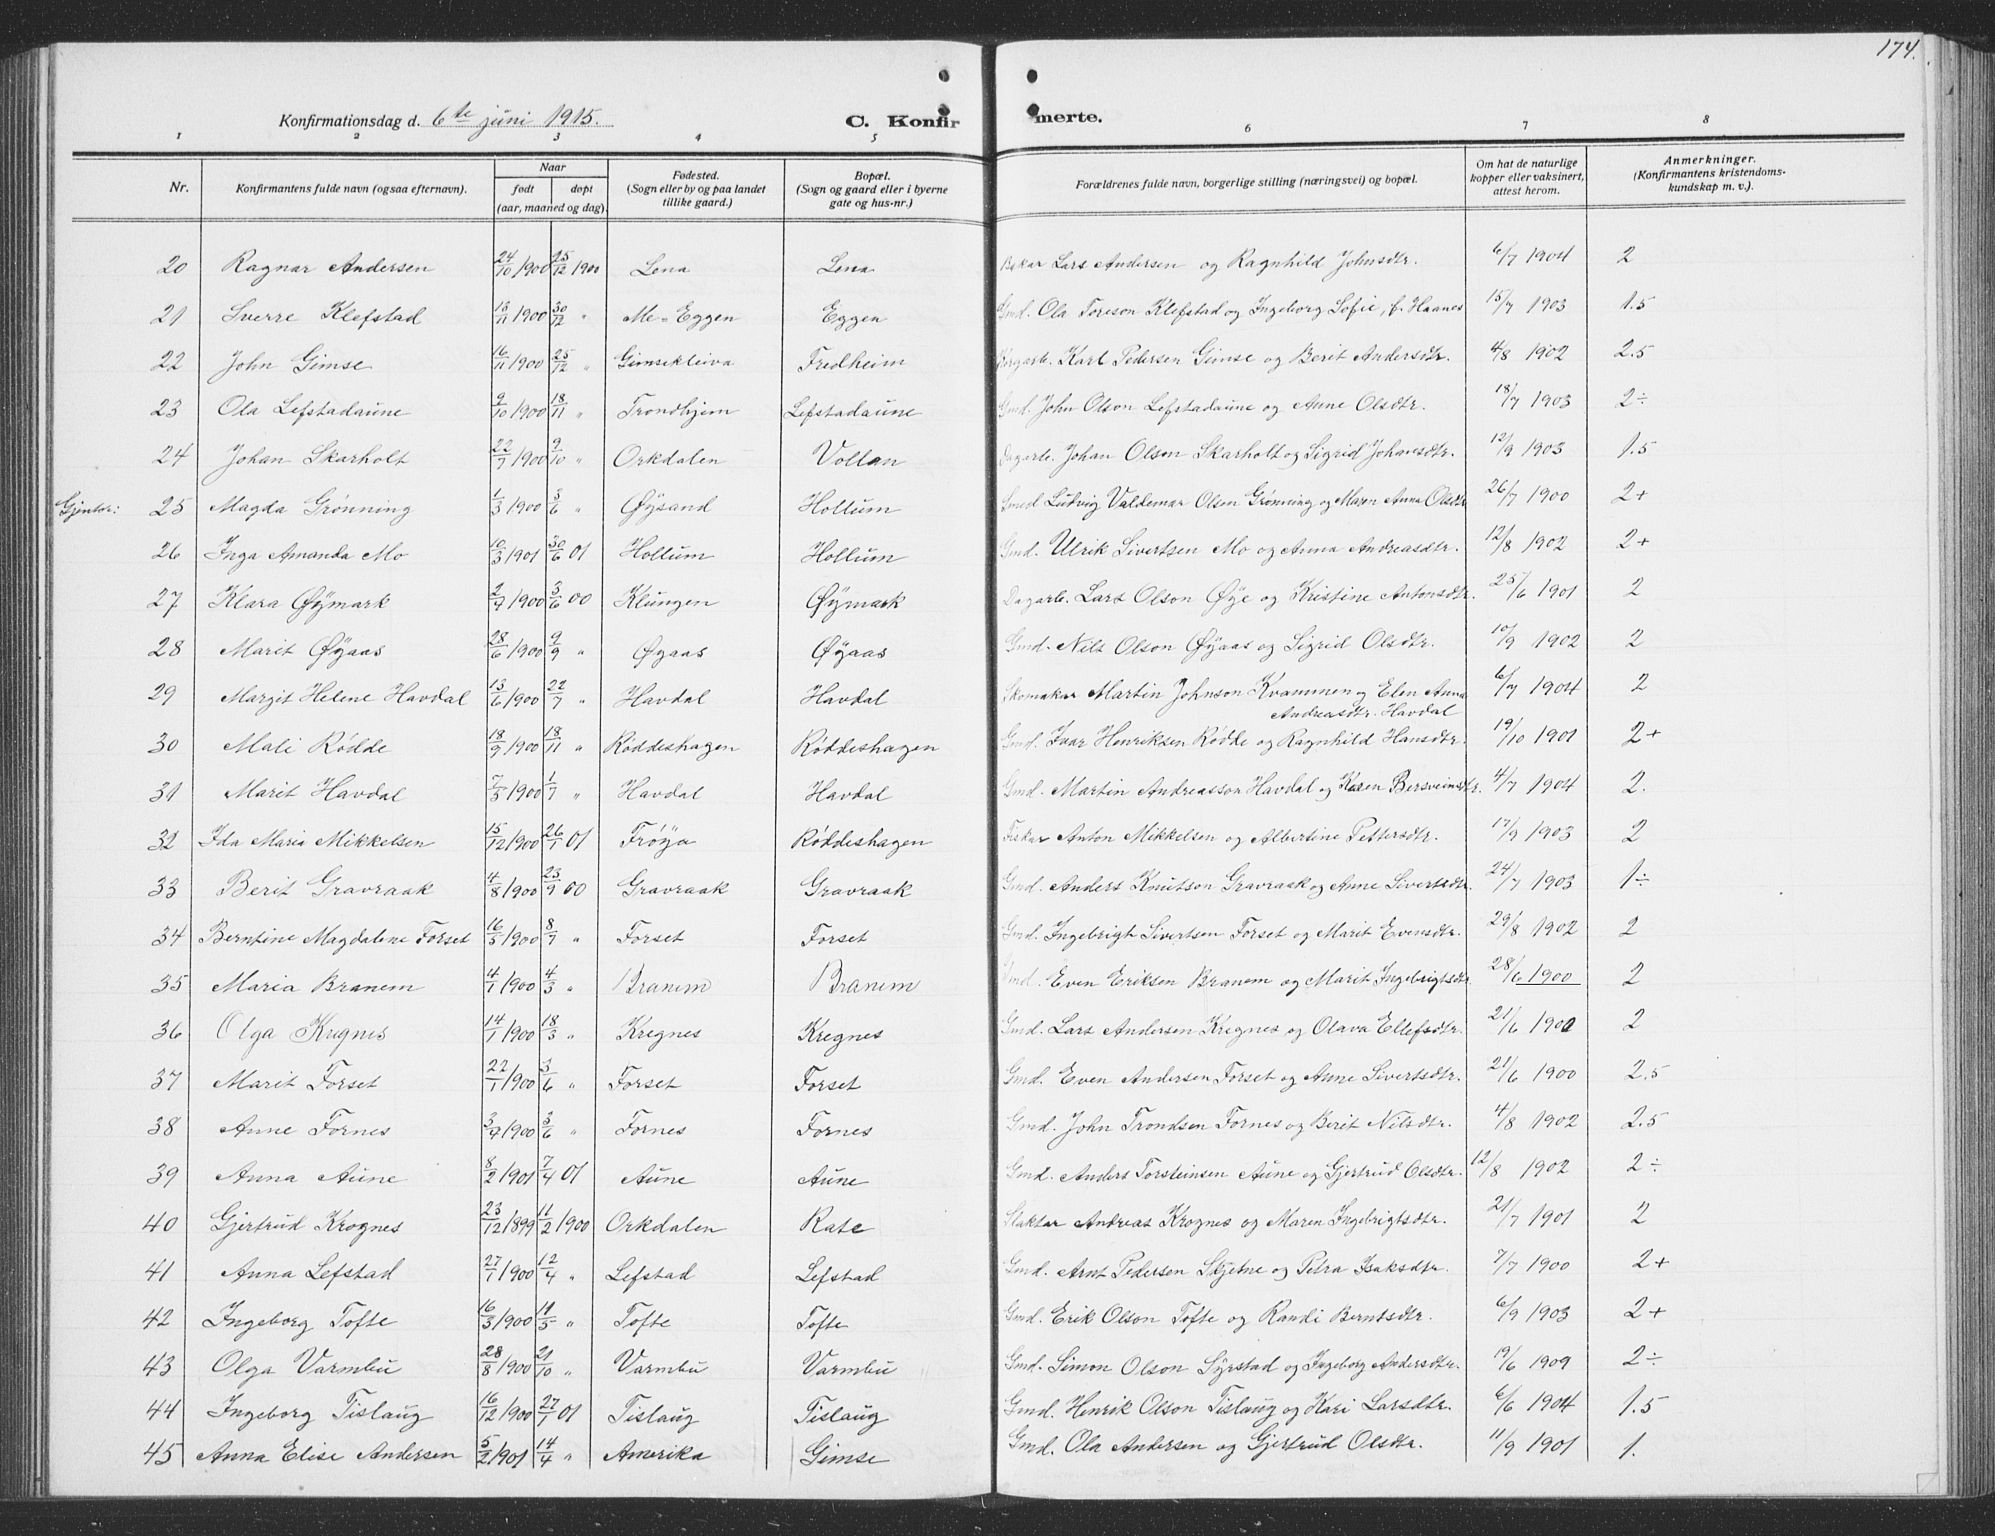 174.
Konfirmationsdag d. 6te juni 1915. C. Konfir merte.
1 2 3 4 5 6 7 8
Nr. Konfirmantens fulde navn (ogsaa efternavn). Naar født døpt (aar, maaned og dag). Fødested. (Sogn eller by og paa landet tillike gaard.) Bopæl. (Sogn og gaard eller i byerne gate og hus-nr.) Forældrenes fulde navn, borgerlige stilling (næringsvei) og bopæl. Om hat de naturlige kopper eller vaksinert, attest herom. Anmerkninger. (Konfirmantens kristendoms-kundskap m. v.).
20 Ragnar Andersen 24/10 1900 25/12 1900 Lena Lena Bakar Lars Andersen og Ragnhild Johnsdtr. 6/7 1904 2
21 Sverre Klefstad 13/11 1900 30/12 " Me-Eggen Eggen Gmd. Ola Toreson Klefstad og Ingeborg Sofie, f. Haanes 15/7 1903 1.5
22 John Gimse 16/11 1900 25/12 " Gimsekleiva Fredheim Karl Pedersen Gimse og Berit Andersdtr. 4/8 1902 2.5
23 Ola Lefstadaune 9/10 1900 18/11 " Trondhjem Lefstadaune Gmd. John Olson Lefstadaune og Anne Olsdtr. 18/7 1903 2÷
24 Johan Skarholt 22/7 1900 9/10 " Orkdalen Vollan Dagarb. Johan Olson Skarholt og Sigrid Johansdtr. 12/9 1903 1.5
Gjentor: 25 Magda Grønning 1/3 1900 3/6 " Øysand Hollum Smed Ludvig Valdemar Olsen Grønning og Maren Anna Olsdtr 26/7 1900 2+
26 Inga Amanda Mo 10/3 1901 30/6 01 Hollum Hollum Gmd. Ulrik Sivertsen Mo og Anna Andreasdtr. 12/8 1902 2+
27 Klara Øymark 2/4 1900 3/6 00 Klungen Øymark Dagarb. Lars Olson Øye og Kristine Antonsdtr. 25/6 1901 2
28 Marit Øyaas 28/6 1900 9/9 " Øyaas Øyaas Gmd. Nils Olson Øyaas og Sigrid Olsdtr. 10/9 1902 2
29 Margit Helene Havdal 13/6 1900 22/7 " Havdal Havdal Skomakar Martin Johnson Kvammen og Elen Anna Andreasdtr. Havdal 6/7 1904 2
30 Mali Rødde 18/9 1900 18/11 " Røddeshagen Røddeshagen Gmd. Ivar Henriksen Rødde og Ragnhild Hansdtr. 19/10 1901 2+
31 Marit Havdal 7/5 1900 1/7 " Havdal Havdal Gmd. Martin Andreasson Havdal og Karen Bersveinsdtr. 4/7 1904 2.
32 Ida Maria Mikkelsen 15/12 1900 26/1 01 Frøya Røddeshagen Fiskar Anton Mikkelsen og Albertine Pettersdtr. 17/9 1903 2
33 Berit Gravraak 4/8 1900 23/9 00 Gravraak Gravraak Gmd. Anders Knutson Gravraak og Anne Sivertsdtr. 24/7 1903 1÷
34 Berntine Magdalene Forset 16/5 1900 8/7 " Forset Forset Gmd. Ingebrigt Sivertsen Forset og Marit Evensdtr. 29/8 1902 2
35 Maria Branem 4/1 1900 4/3 " Branem Branem Gmd. Even Eriksen Branem og Marit Ingebrigtsdtr. 28/6 1900 2
36 Olga Kregnes 14/1 1900 18/3 " Kregnes Kregnes Gmd. Lars Andersen Kregnes og Olava Ellefsdtr. 21/6 1900 2
37 Marit Forset 22/1 1900 3/6 " Forset Forset Gmd. Even Andersen Forset og Anne Sivertsdtr. 21/6 1900 2.5
38 Anne Fornes 3/4 1900 3/6 " Fornes Fornes Gmd. John Trondsen Fornes og Berit Nilsdtr. 4/8 1902 2.5
39 Anna Aune 8/2 1901 7/4 01 Aune Aune Gmd. Anders Torsteinsen Aune og Gjertrud Olsdtr. 12/8 1902 2÷
40 Gjertrud Krognes 23/12 1899 11/2 1900 Orkdalen Rate Slaktar Andreas Krognes og Maren Ingebrigtsdtr. 21/7 1901 2
41 Anna Lefstad 27/1 1900 12/4 " Lefstad Lefstad Gmd. Arnt Pedersen Skjetne og Petra Isaksdtr. 7/7 1900 2+
42 Ingeborg Tofte 16/3 1900 11/5 " Tofte Tofte Gmd. Erik Olson Tofte og Randi Berntsdtr. 6/9 1903 2+
43 Olga Varmbu 28/8 1900 21/10 " Varmbu Varmbu Gmd. Simon Olson Syrstad og Ingeborg Andersdtr. 19/6 1909 2÷
44 Ingeborg Tislaug 16/12 1900 27/1 01 Tislaug Tislaug Gmd. Henrik Olson Tislaug og Kari Larsdtr. 6/6 1904 1.5
45 Anna Elise Andersen 5/2 1901 14/4 " Amerika Gimse Gmd. Ola Andersen og Gjertrud Olsdtr. 11/9 1901 1.